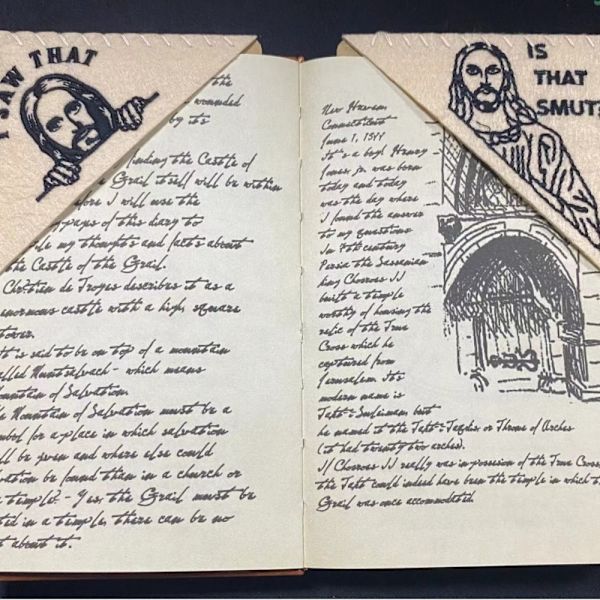 I SAW THAT
the
wounded
by its
finding the Castle of
Grail itself will be within
I will use the
pages of this diary to
my thoughts and facts about
the Castle of the Grail.
Chrétien de Troyes describes it as a
enormous castle with a high square
tower.
It is said to be on top of a mountain
called Muntsalvach - which means
Mountain of Salvation.
Mountain of Salvation must be a
symbol for a place in which salvation
be given and where else could
be found than in a church or
temple? - Yes, the Grail must be
in a temple, there can be no
about it.
IS
THAT
SMUT?
New Haven
Connecticut
June 1, 1911
It's a boy! Henry
Jones, jr. was born
today and today
was the day where
I found the answer
to my questions
In 7th century
Persia the Sassanian
king Chosroes II
built a temple
worthy of housing the
relic of the True
Cross which he
captured from
Jerusalem. Its
modern name is
Takt-i-Suleiman but
he named it the Takt-i-Taqdis or Throne of Arches
(it had twenty two arches).
If Chosroes II really was in possesion of the True Cross,
the Takt could indeed have been the temple in which the
Grail was once accommodated.